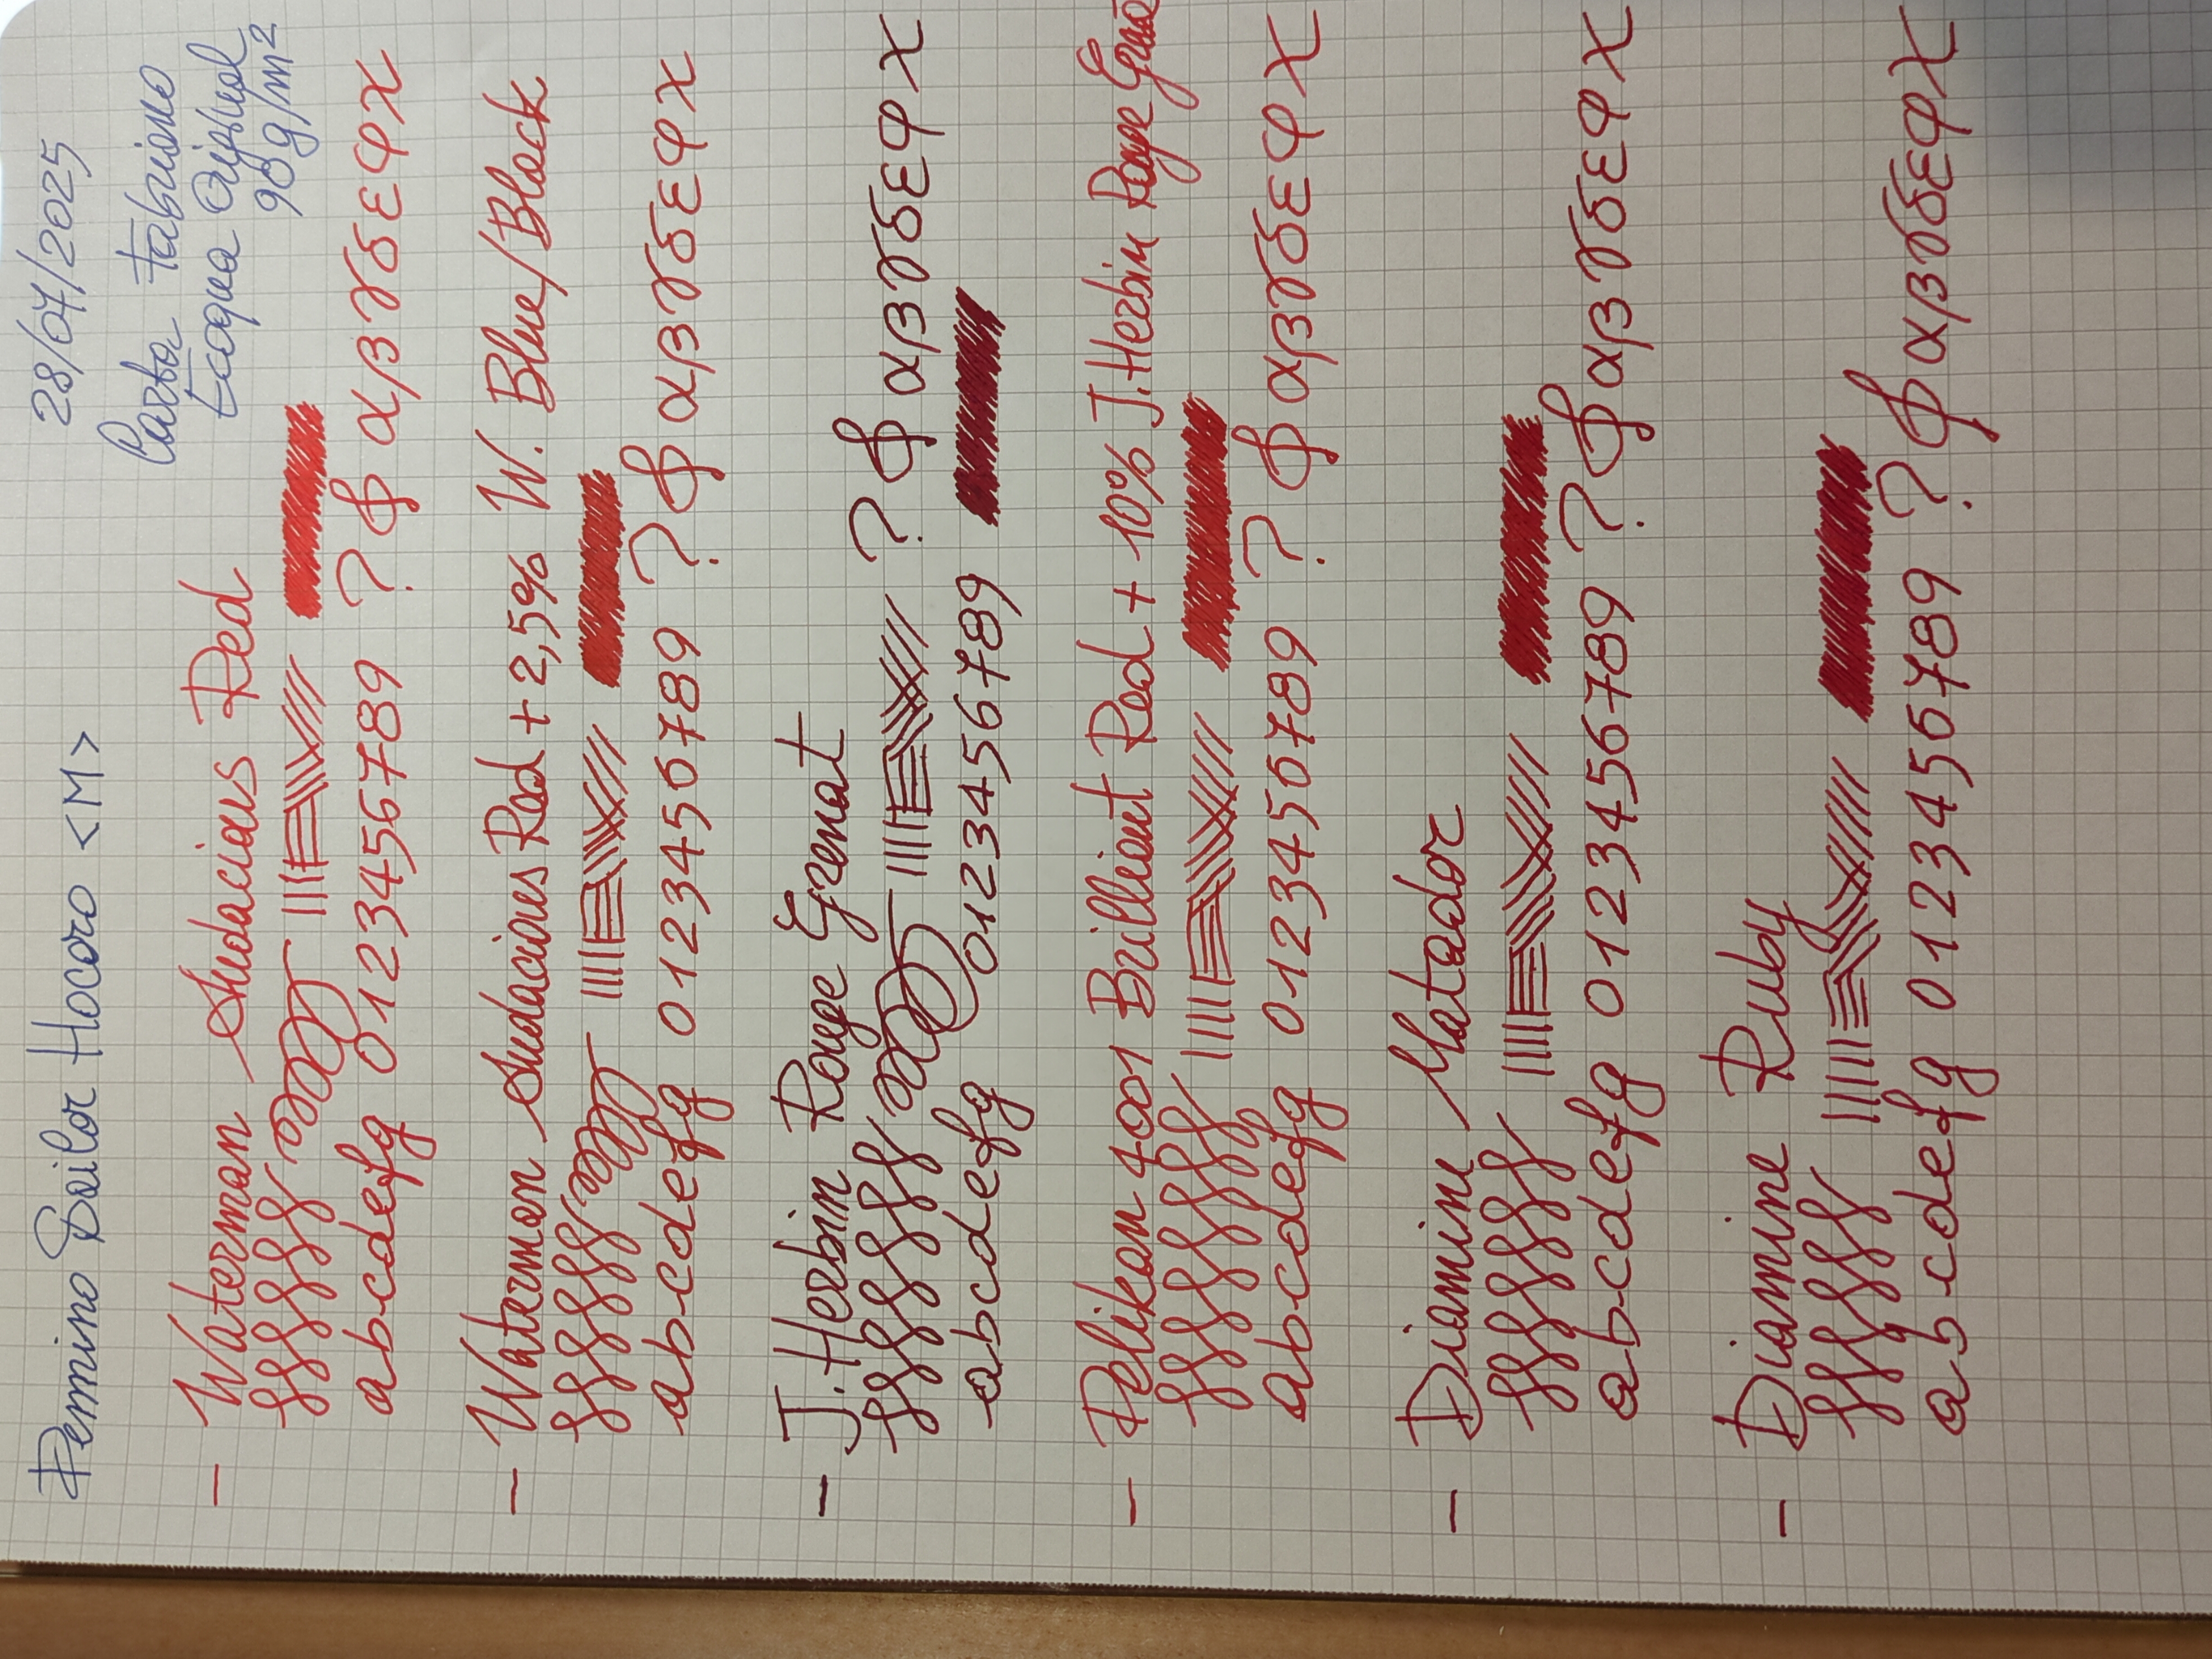 Pennino Sailor Hocoro <M>
28/07/2025
Carta Fabriano
Ecoqua Original
90 g/m²
- Waterman Audacious Red
abcdefg 0123456789 ? & αβγδεφχ
- Waterman Audacious Red + 2,5% W. Blue/Black
abcdefg 0123456789 ? & αβγδεφχ
- J. Herbin Rouge Grenat
? & αβγδεφχ
abcdefg 0123456789
- Pelikan 4001 Brilliant Red + 10% J. Herbin Rouge Grenat
abcdefg 0123456789 ? & αβγδεφχ
- Diamine Matador
abcdefg 0123456789 ? & αβγδεφχ
- Diamine Ruby
abcdefg 0123456789 ? & αβγδεφχ